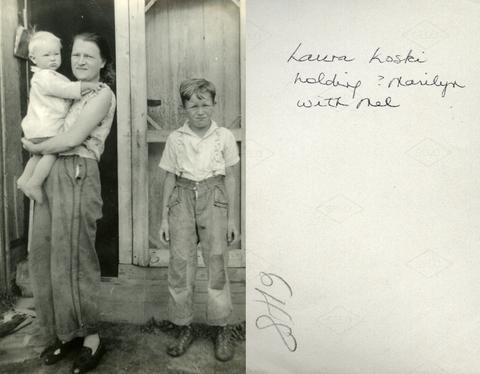 Laura Koski
holding ? Marilyn
with Mel
8419